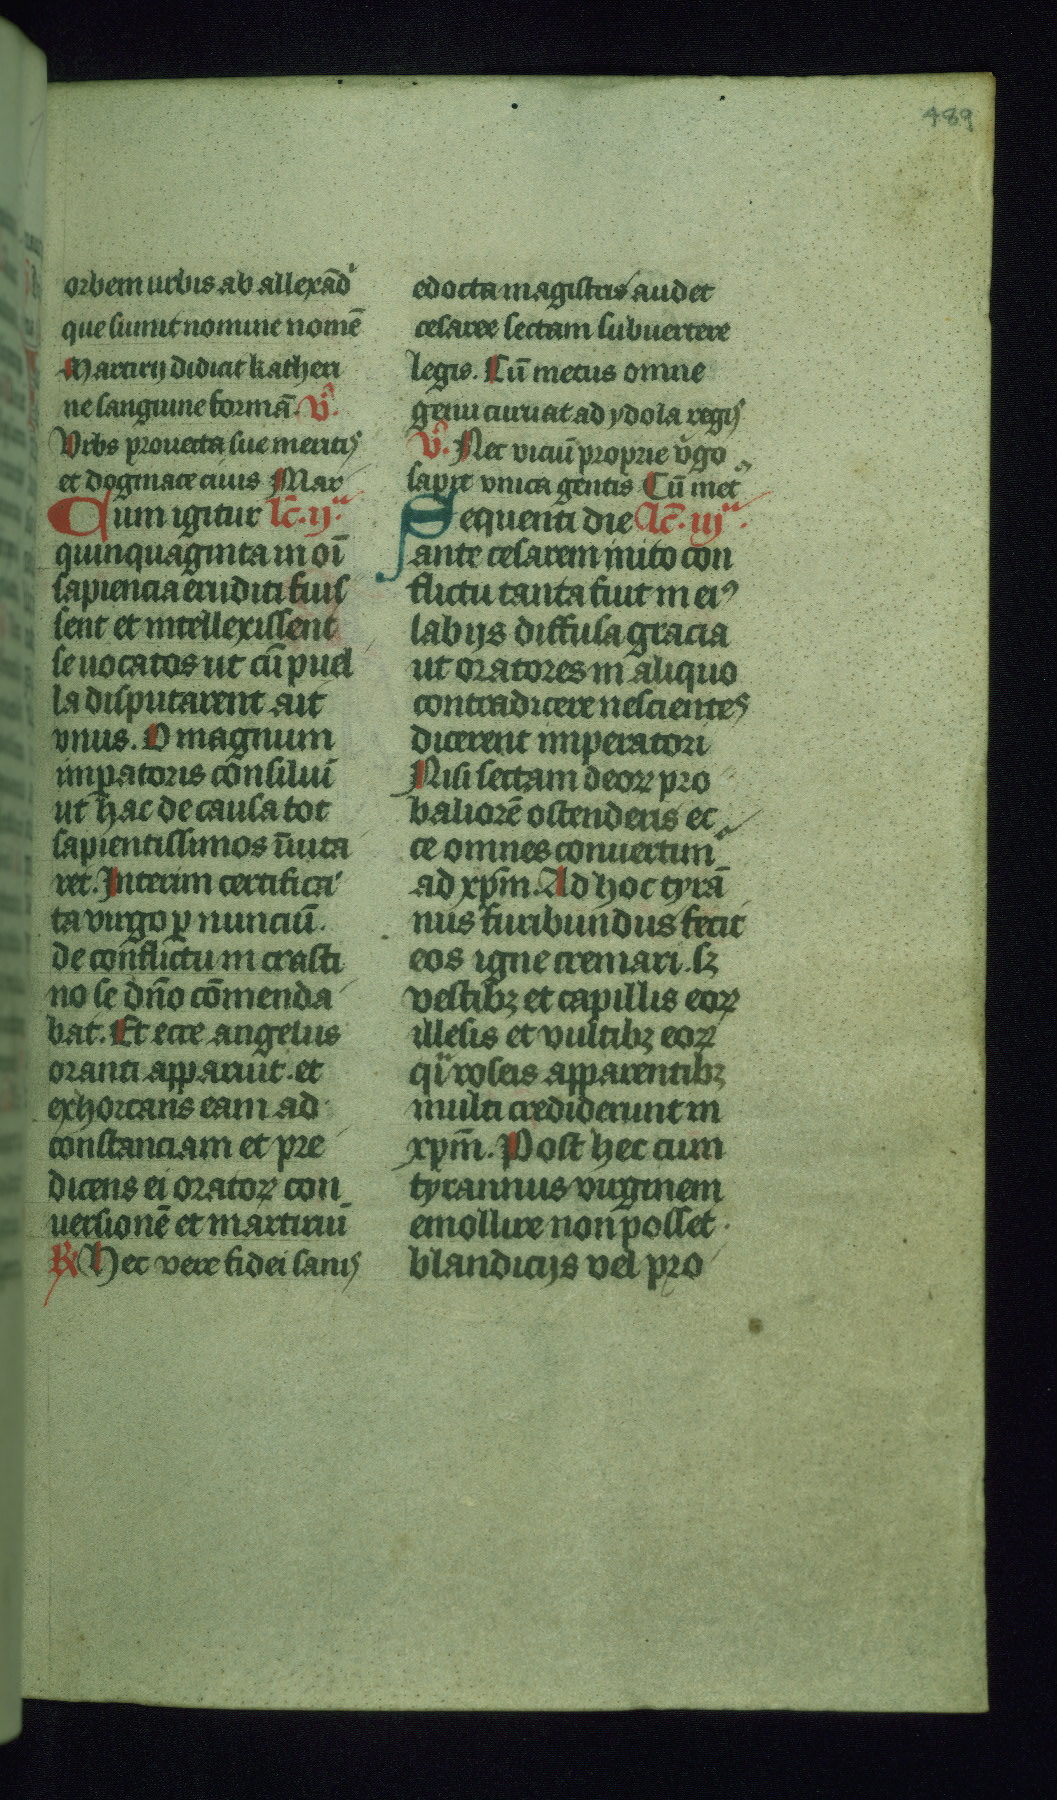 489
orbem urbis ab allexād'
que sumit nomine nomē
Martirij didicit katheri
ne sanguine formā. V̄.
Vrbs prouecta sue meritis
et dogmate ciuis Mar
Cum igitur lc̄. ij.ᵃ
quinquaginta in oī
sapiencia eruditi fuis
sent et intellexissent
se uocatos ut cū puel
la disputarent ait
vnus. O magnum
imꝑatoris cōsiliuī
ut hac de causa tot
sapientissimos īuita
ret. Interim certifica
ta virgo ꝑ nunciū.
de conflictu in crasti
no se dn̄o cōmenda
bat. Et ecce angelus
oranti apparuit. et
exhortans eam ad
constanciam et pre
dicens ei oratoꝝ con
uersionē et martiriū
℟ Hec vere fidei sanis
edocta magistris audet
cesaree sectam subuertere
legis. Cū metus omne
genu curuat ad ydola regis
V̄. Nec viciū proprie v̄go
sapit vnica gentis Cū met
Sequenti die lc̄. iij.ᵃ
ante cesarem inito con
flictu tanta fuit in eiꝰ
labijs diffusa gracia
ut oratores in aliquo
contradicere nescientes
dicerent imperatori
Nisi sectam deoꝝ pro
baliorē ostenderis ec
ce omnes conuertim
ad xp̄m. Ad hoc tyrā
nus furibundus fecit
eos igne cremari. sꝫ
vestibꝫ et capillis eoꝝ
illesis et vultibꝫ eoꝝ
qͣ roseis apparentibꝫ
multi crediderunt in
xp̄m. Post hec cum
tyrannus virginem
emollire non posset
blandicijs vel pro